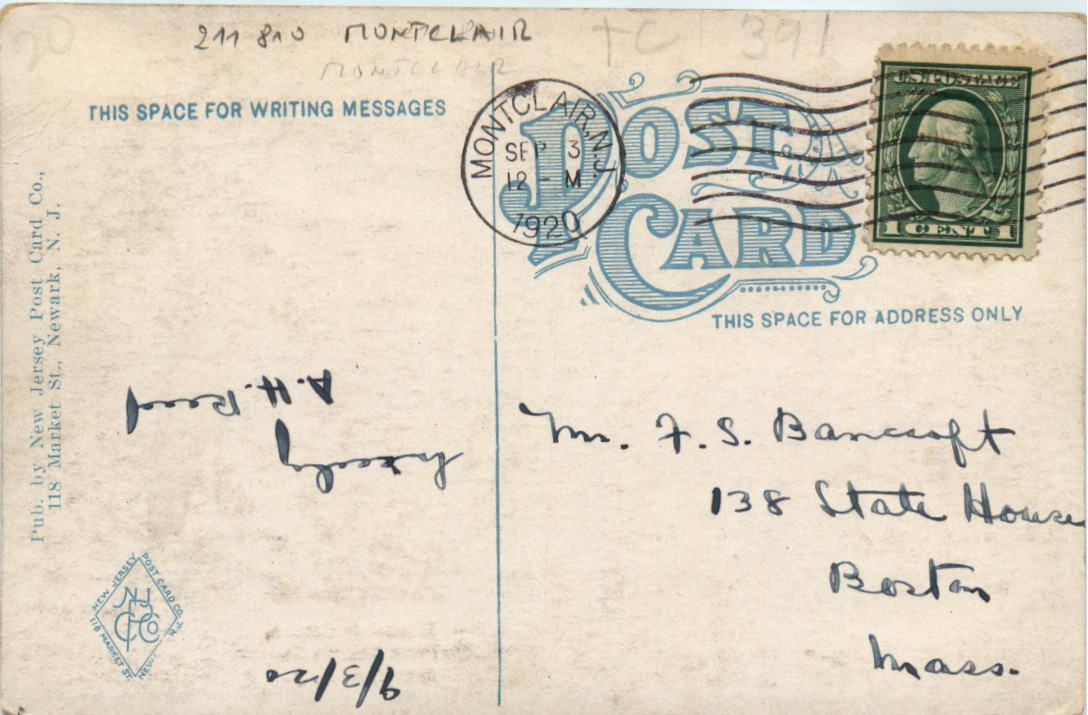 211 810 MONTCLAIR
MONTCLAIR
TC 391
THIS SPACE FOR WRITING MESSAGES
POST
CARD
MONTCLAIR, N.J.
SEP 3
12 - M
1920
U.S. POSTAGE
1 CENT 1
THIS SPACE FOR ADDRESS ONLY
Pub. by New Jersey Post Card Co.,
118 Market St., Newark, N. J.
9/3/20
Sincerely
A. H. Reed
Mr. F. S. Bancroft
138 State House
Boston
Mass.
NEW JERSEY POST CARD CO.
118 MARKET ST. NEW N.J.
NJ
PC Co